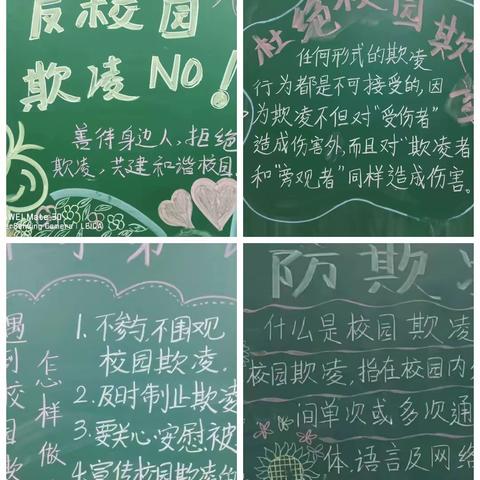 反校园
欺凌NO!
善待身边人,拒绝
欺凌,共建和谐校园
WEI Mate 30
Sensing Camera | LEICA
杜绝校园欺
任何形式的欺凌
行为都是不可接受的,因
为欺凌不但对“受伤者”
造成伤害外,而且对“欺凌者
和“旁观者”同样造成伤害。
怎样做
1.不参与,不围观
校园欺凌.
2.及时制止欺凌
3.要关心安慰被
4.宣传校园欺凌的
防欺
什么是校园欺凌
校园欺凌,指在校园内
间单次或多次通
体、语言及网络